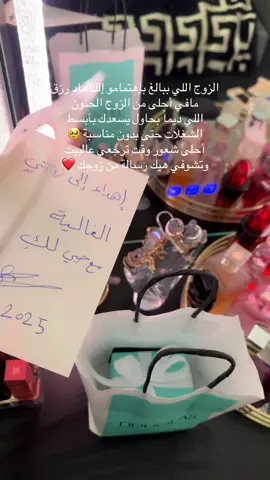 الزوج اللي ببالغ بإهتمامو إلك هاد رزق
مافي أحلى من الزوج الحنون
اللي ديماً بحاول يسعدك بأبسط
الشغلات حتى بدون مناسبة 🥹
أحلى شعور وقت ترجعي عالبيت
وتشوفي هيك رسالة من زوجك ❤️
إهداء إلى زوجتي
الغالية
مع حبي لكِ
2025